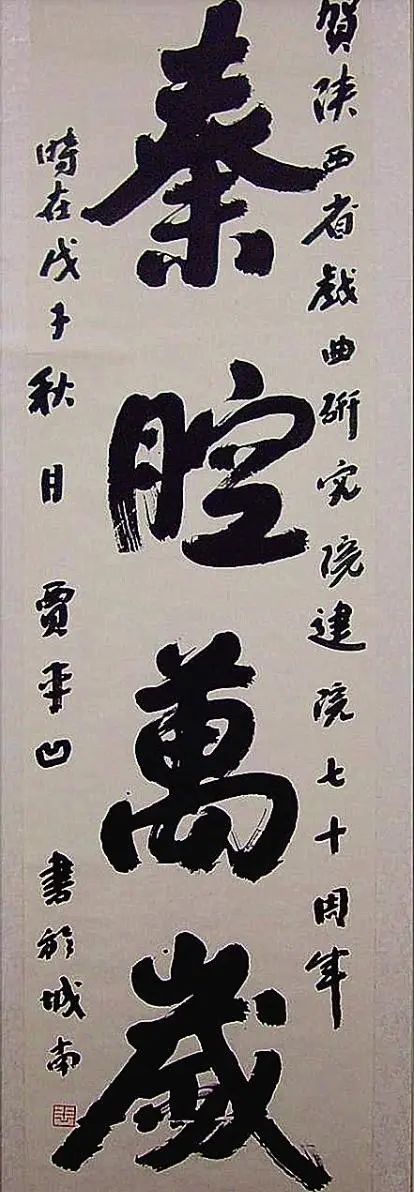 賀陕西省戲曲研究院建院七十周年
秦腔萬歲
時在戊子秋月 賈平凹 書於城南